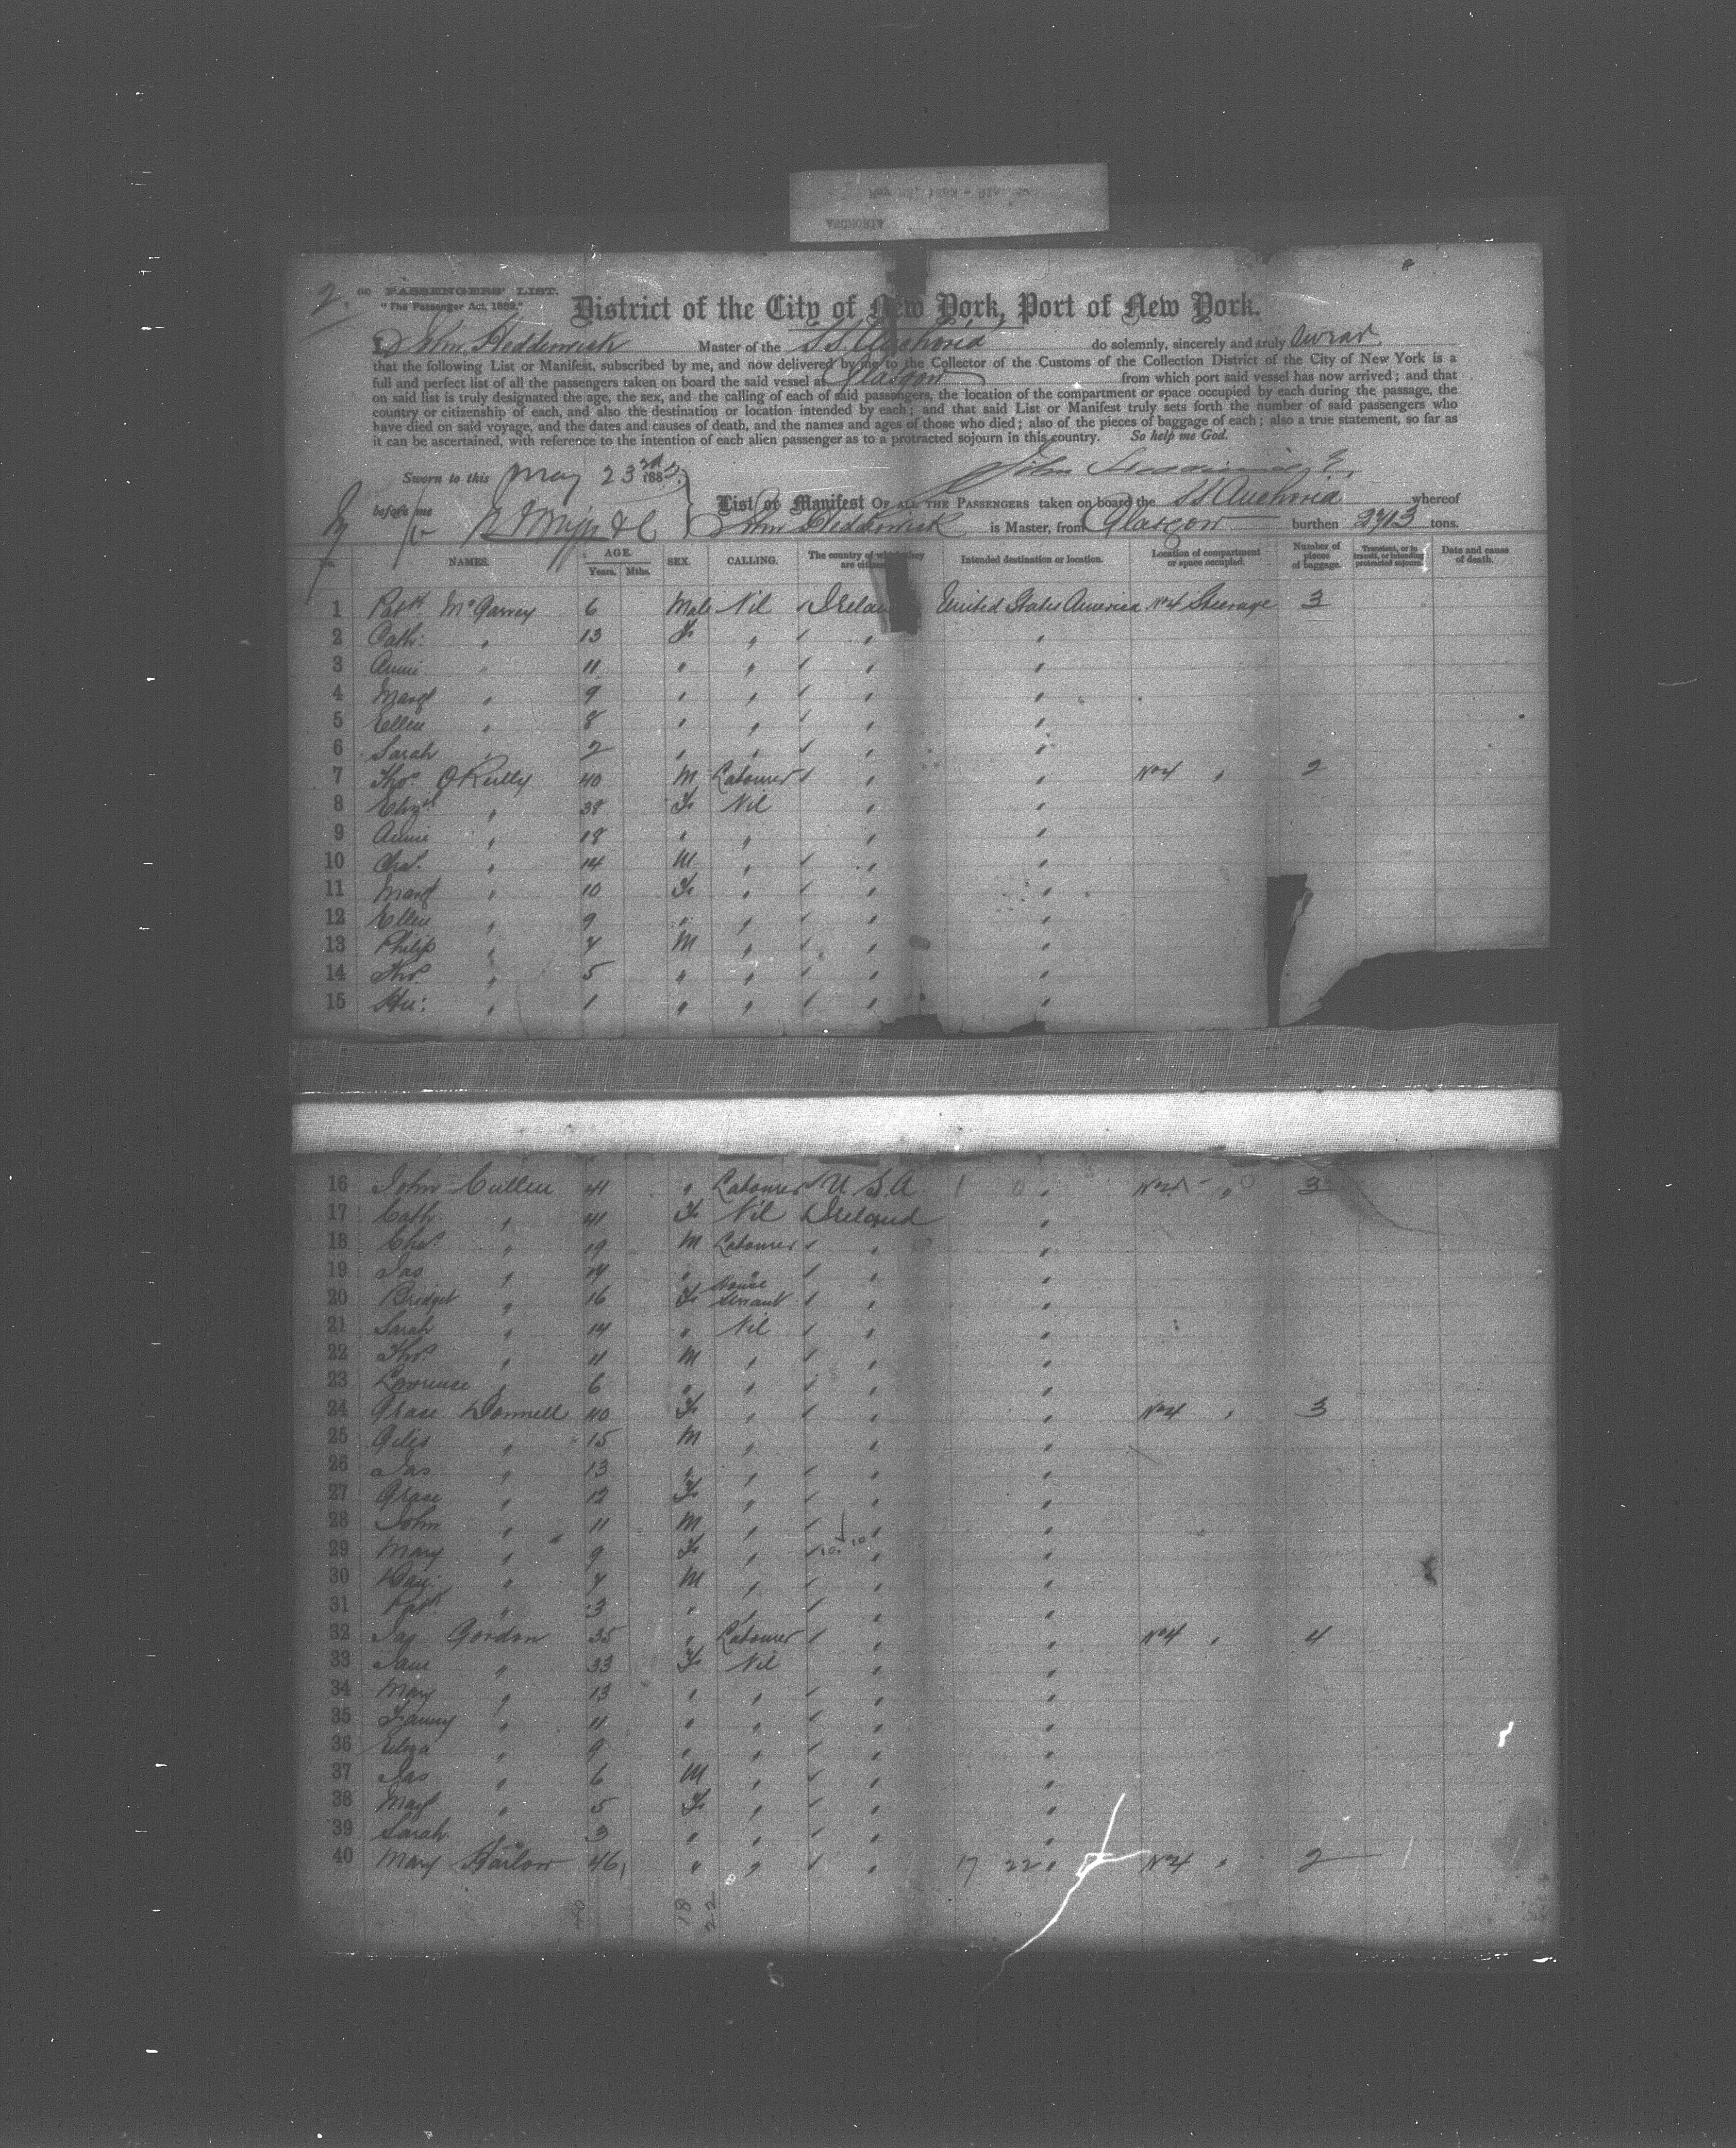 ANCHORIA
2.
PASSENGERS' LIST.
"The Passenger Act, 1882."
District of the City of New York, Port of New York.
I, John Hedderwick Master of the SS. Anchoria do solemnly, sincerely and truly Swear
that the following List or Manifest, subscribed by me, and now delivered by me to the Collector of the Customs of the Collection District of the City of New York is a
full and perfect list of all the passengers taken on board the said vessel at Glasgow from which port said vessel has now arrived; and that
on said list is truly designated the age, the sex, and the calling of each of said passengers, the location of the compartment or space occupied by each during the passage, the
country or citizenship of each, and also the destination or location intended by each; and that said List or Manifest truly sets forth the number of said passengers who
have died on said voyage, and the dates and causes of death, and the names and ages of those who died; also of the pieces of baggage of each; also a true statement, so far as
it can be ascertained, with reference to the intention of each alien passenger as to a protracted sojourn in this country. So help me God.
Sworn to this May 23rd 188
before me
John Hedderwick
List or Manifest OF ALL THE PASSENGERS taken on board the SS Anchoria whereof
John Hedderwick is Master, from Glasgow burthen 2713 tons.
No. NAMES. AGE. Years. Mths. SEX. CALLING. The country of which they are citizens. Intended destination or location. Location of compartment or space occupied. Number of pieces of baggage. Transient, or in transit, or intending protracted sojourn. Date and cause of death.
1 Patk McGarvey 6 Male Nil Irelan United States America No 4 Steerage 3
2 Cath: " 13 F " " "
3 Annie " 11 " " " "
4 Margt " 9 " " " "
5 Ellen " 8 " " " "
6 Sarah " 2 " " " "
7 Thos. O'Reilly 40 M Labourer " " No 4 " 2
8 Elizth " 38 F Nil " "
9 Annie " 18 " " " "
10 Chas. " 14 M " " "
11 Margt " 10 F " " "
12 Ellen " 9 " " " "
13 Philip " 7 M " " "
14 Thos. " 5 " " " "
15 " 1 " " " "
16 John Cullen 41 " Labourer U.S.A 1 0 " No 4 " 3
17 Cath: " 41 F Nil Ireland "
18 Chas. " 19 M Labourer " "
19 Jas " 17 " " " "
20 Bridget " 16 F House Servant " "
21 Sarah " 14 " Nil " "
22 Thos. " 11 M " " "
23 Lawrence " 6 " " " "
24 Grace Donnell 40 F " " " No 4 " 3
25 Giles " 15 M " " "
26 Jas " 13 " " " "
27 Grace " 12 F " " "
28 John " 11 M " " "
29 Mary " 9 F " " "
30 " 7 M " " "
31 Patk " 3 " " " "
32 Jas Gordon 35 " Labourer " " No 4 " 4
33 Jane " 33 F Nil " "
34 Mary " 13 " " " "
35 Fanny " 11 " " " "
36 Eliza " 9 " " " "
37 Jas " 6 M " " "
38 Margt " 5 F " " "
39 Sarah " 3 " " " "
40 Mary Harlow 46 " " " 17 22 " No 4 " 2
40 18 22